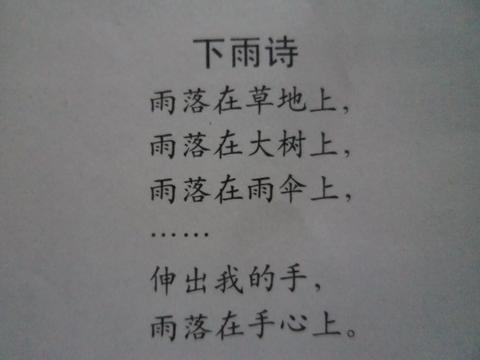 下雨诗
雨落在草地上，
雨落在大树上，
雨落在雨伞上，
……
伸出我的手，
雨落在手心上。